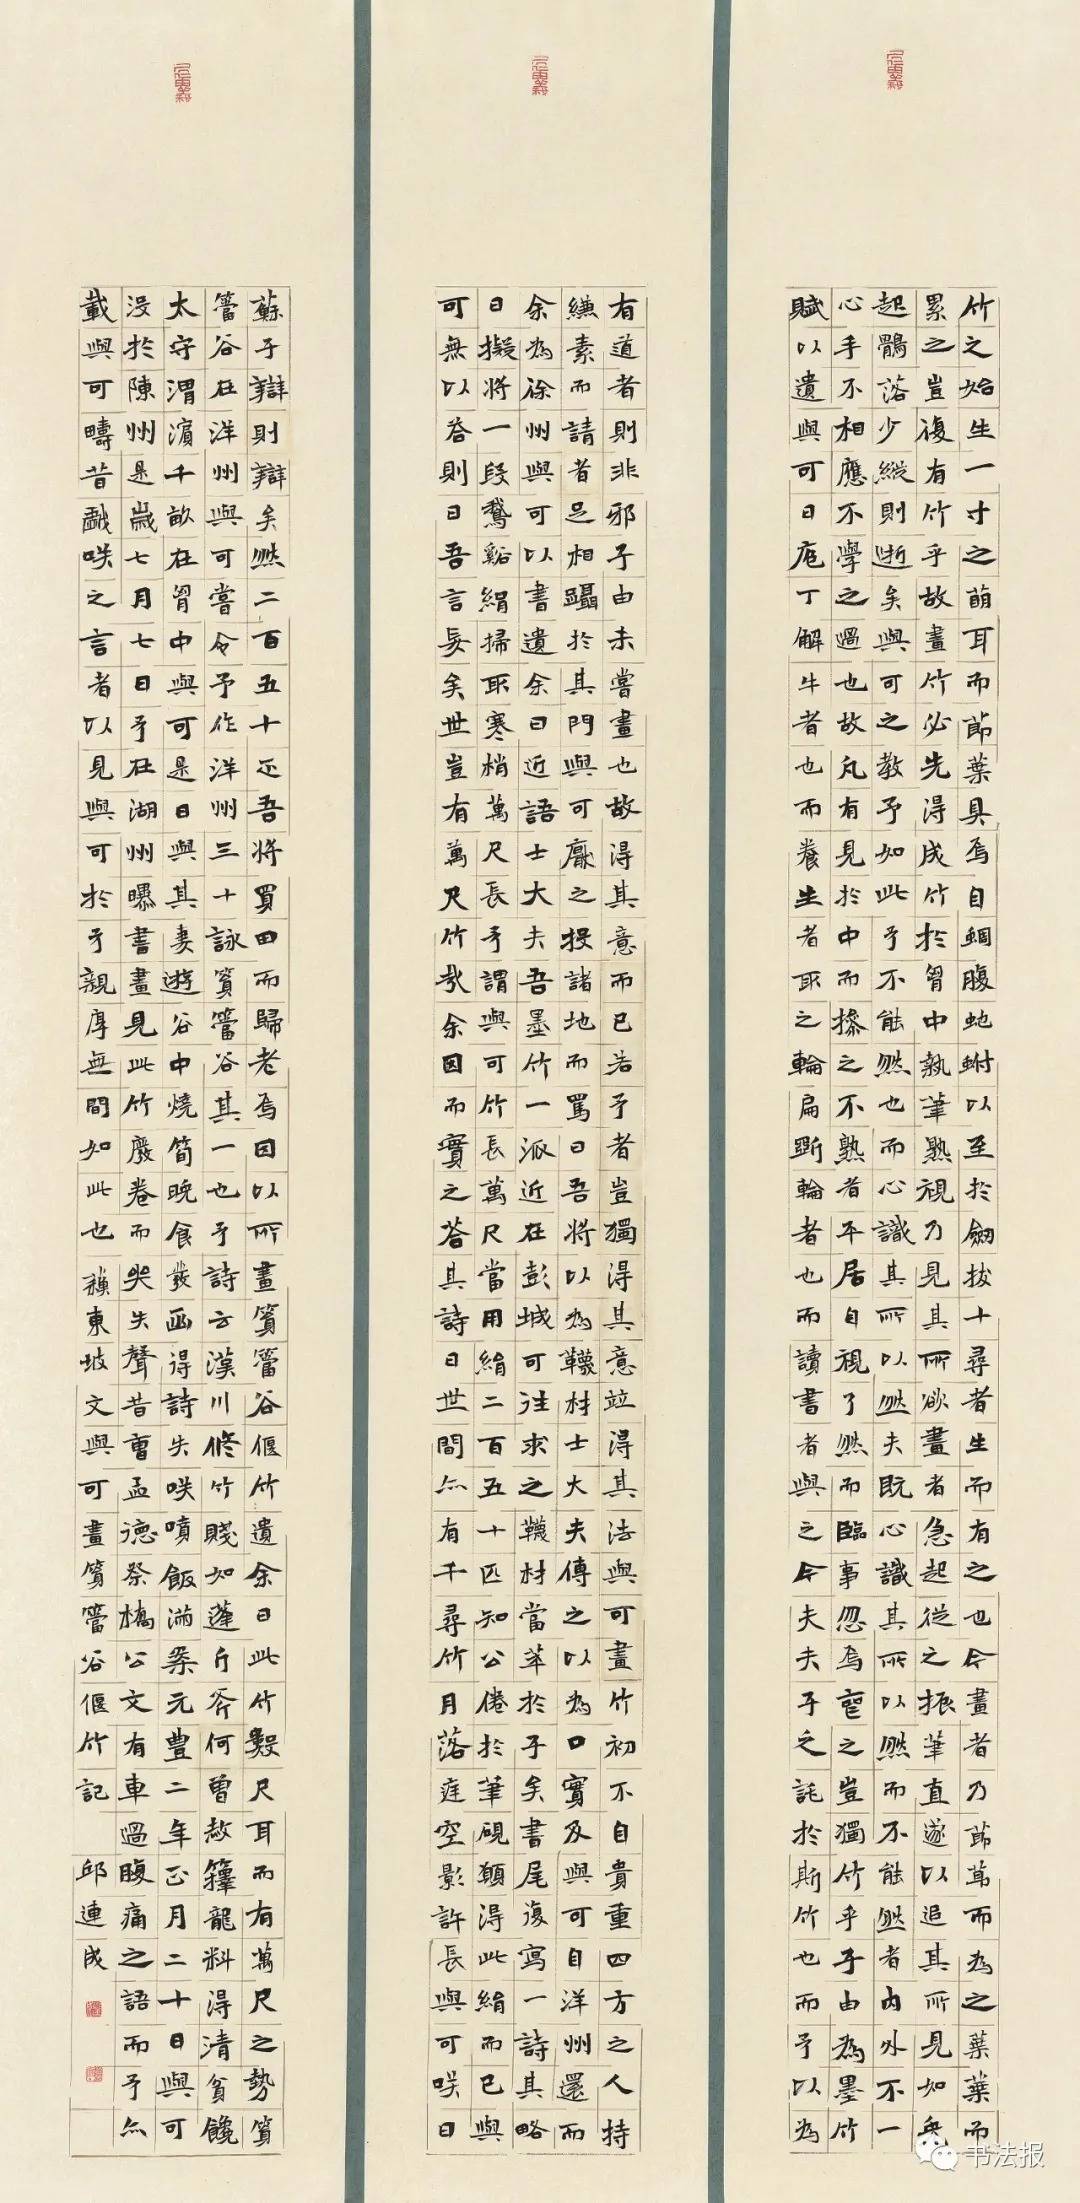 竹之始生一寸之萌耳而節葉具焉自蜩腹蛇蚹以至於劍拔十尋者生而有之也今畫者乃節節而為之葉葉而
累之豈復有竹乎故畫竹必先得成竹於胷中執筆熟視乃見其所欲畫者急起從之振筆直遂以追其所見如兔
起鶻落少縱則逝矣與可之教予如此予不能然也而心識其所以然夫既心識其所以然而不能然者內外不一
心手不相應不學之過也故凡有見於中而操之不熟者平居自視了然而臨事忽焉喪之豈獨竹乎子由為墨竹
賦以遺與可曰庖丁解牛者也而養生者取之輪扁斲輪者也而讀書者與之今夫夫子之託於斯竹也而予以為
有道者則非邪子由未嘗畫也故得其意而已若予者豈獨得其意竝得其法與可畫竹初不自貴重四方之人持
縑素而請者足相躡於其門與可厭之投諸地而罵曰吾將以為韈材士大夫傳之以為口實及與可自洋州還而
余為徐州與可以書遺余曰近語士大夫吾墨竹一派近在彭城可往求之韈材當萃於子矣書尾復寫一詩其略
曰擬將一段鵞谿絹掃取寒梢萬尺長予謂與可竹長萬尺當用絹二百五十匹知公倦於筆硯願得此絹而已與
可無以荅則曰吾言妄矣世豈有萬尺竹哉余因而實之荅其詩曰世間亦有千尋竹月落庭空影許長與可咲曰
蘇子辯則辯矣然二百五十匹吾將買田而歸老焉因以所畫篔簹谷偃竹遺余曰此竹數尺耳而有萬尺之勢篔
簹谷在洋州與可嘗令予作洋州三十詠篔簹谷其一也予詩云漢川修竹賤如蓬斤斧何曾赦籜龍料得清貧饞
太守渭濱千畝在胷中與可是日與其妻遊谷中燒筍晚食發函得詩失咲噴飯滿案元豊二年正月二十日與可
沒於陳州是歲七月七日予在湖州曝書畫見此竹廢卷而哭失聲昔曹孟德祭橋公文有車過腹痛之語而予亦
載與可疇昔戲咲之言者以見與可於予親厚無間如此也 蘇東坡文與可畫篔簹谷偃竹記 邱連成
书法报